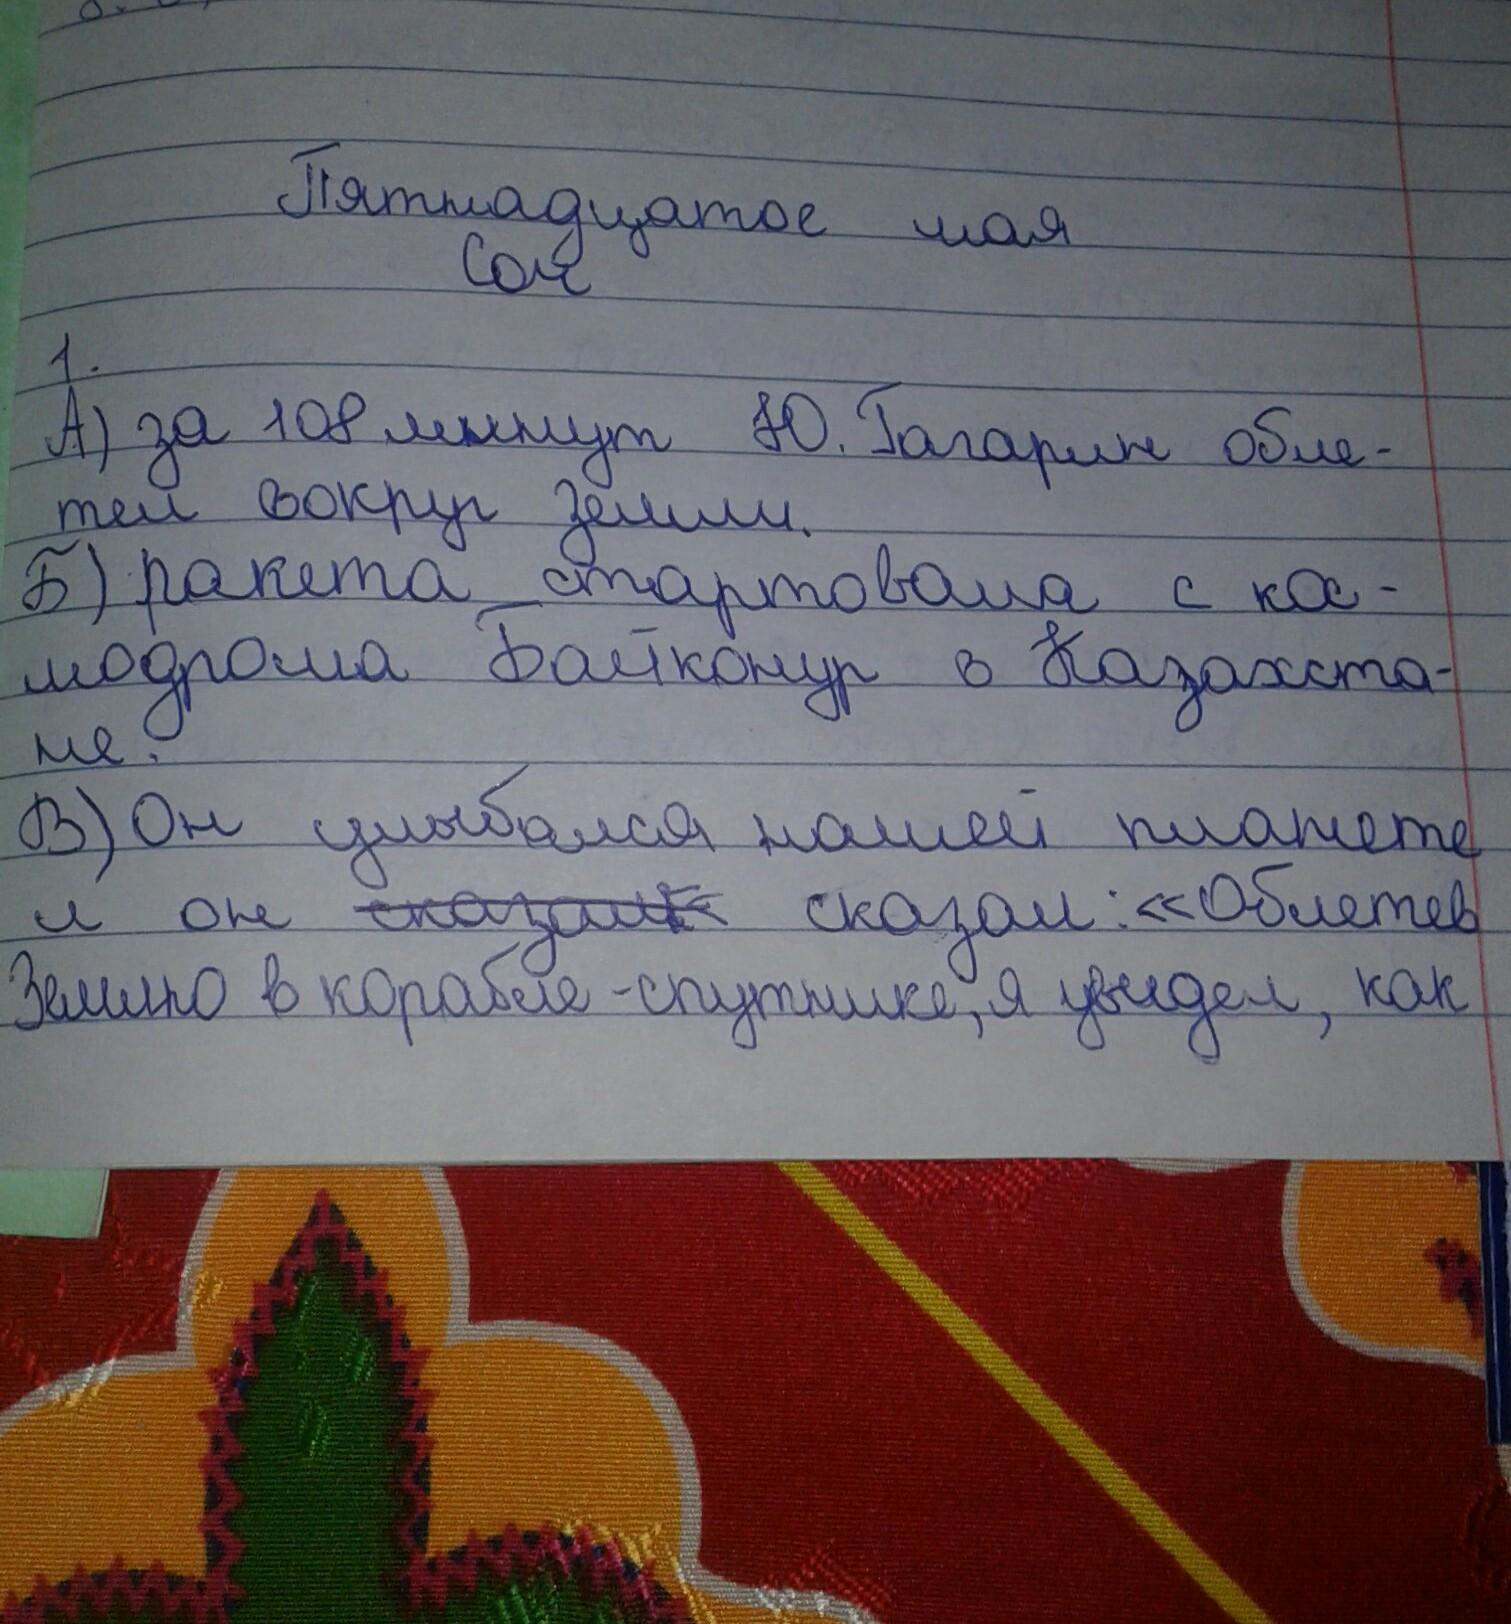 Пятнадцатое мая
Соч
1.
А) за 108 минут Ю. Гагарин обле-
тел вокруг Земли.
Б) ракета стартовала с кос-
модрома Байконур в Казахста-
не.
В) Он улыбался нашей планете
и он сказал: «Облетев
Землю в корабле-спутнике, я увидел, как